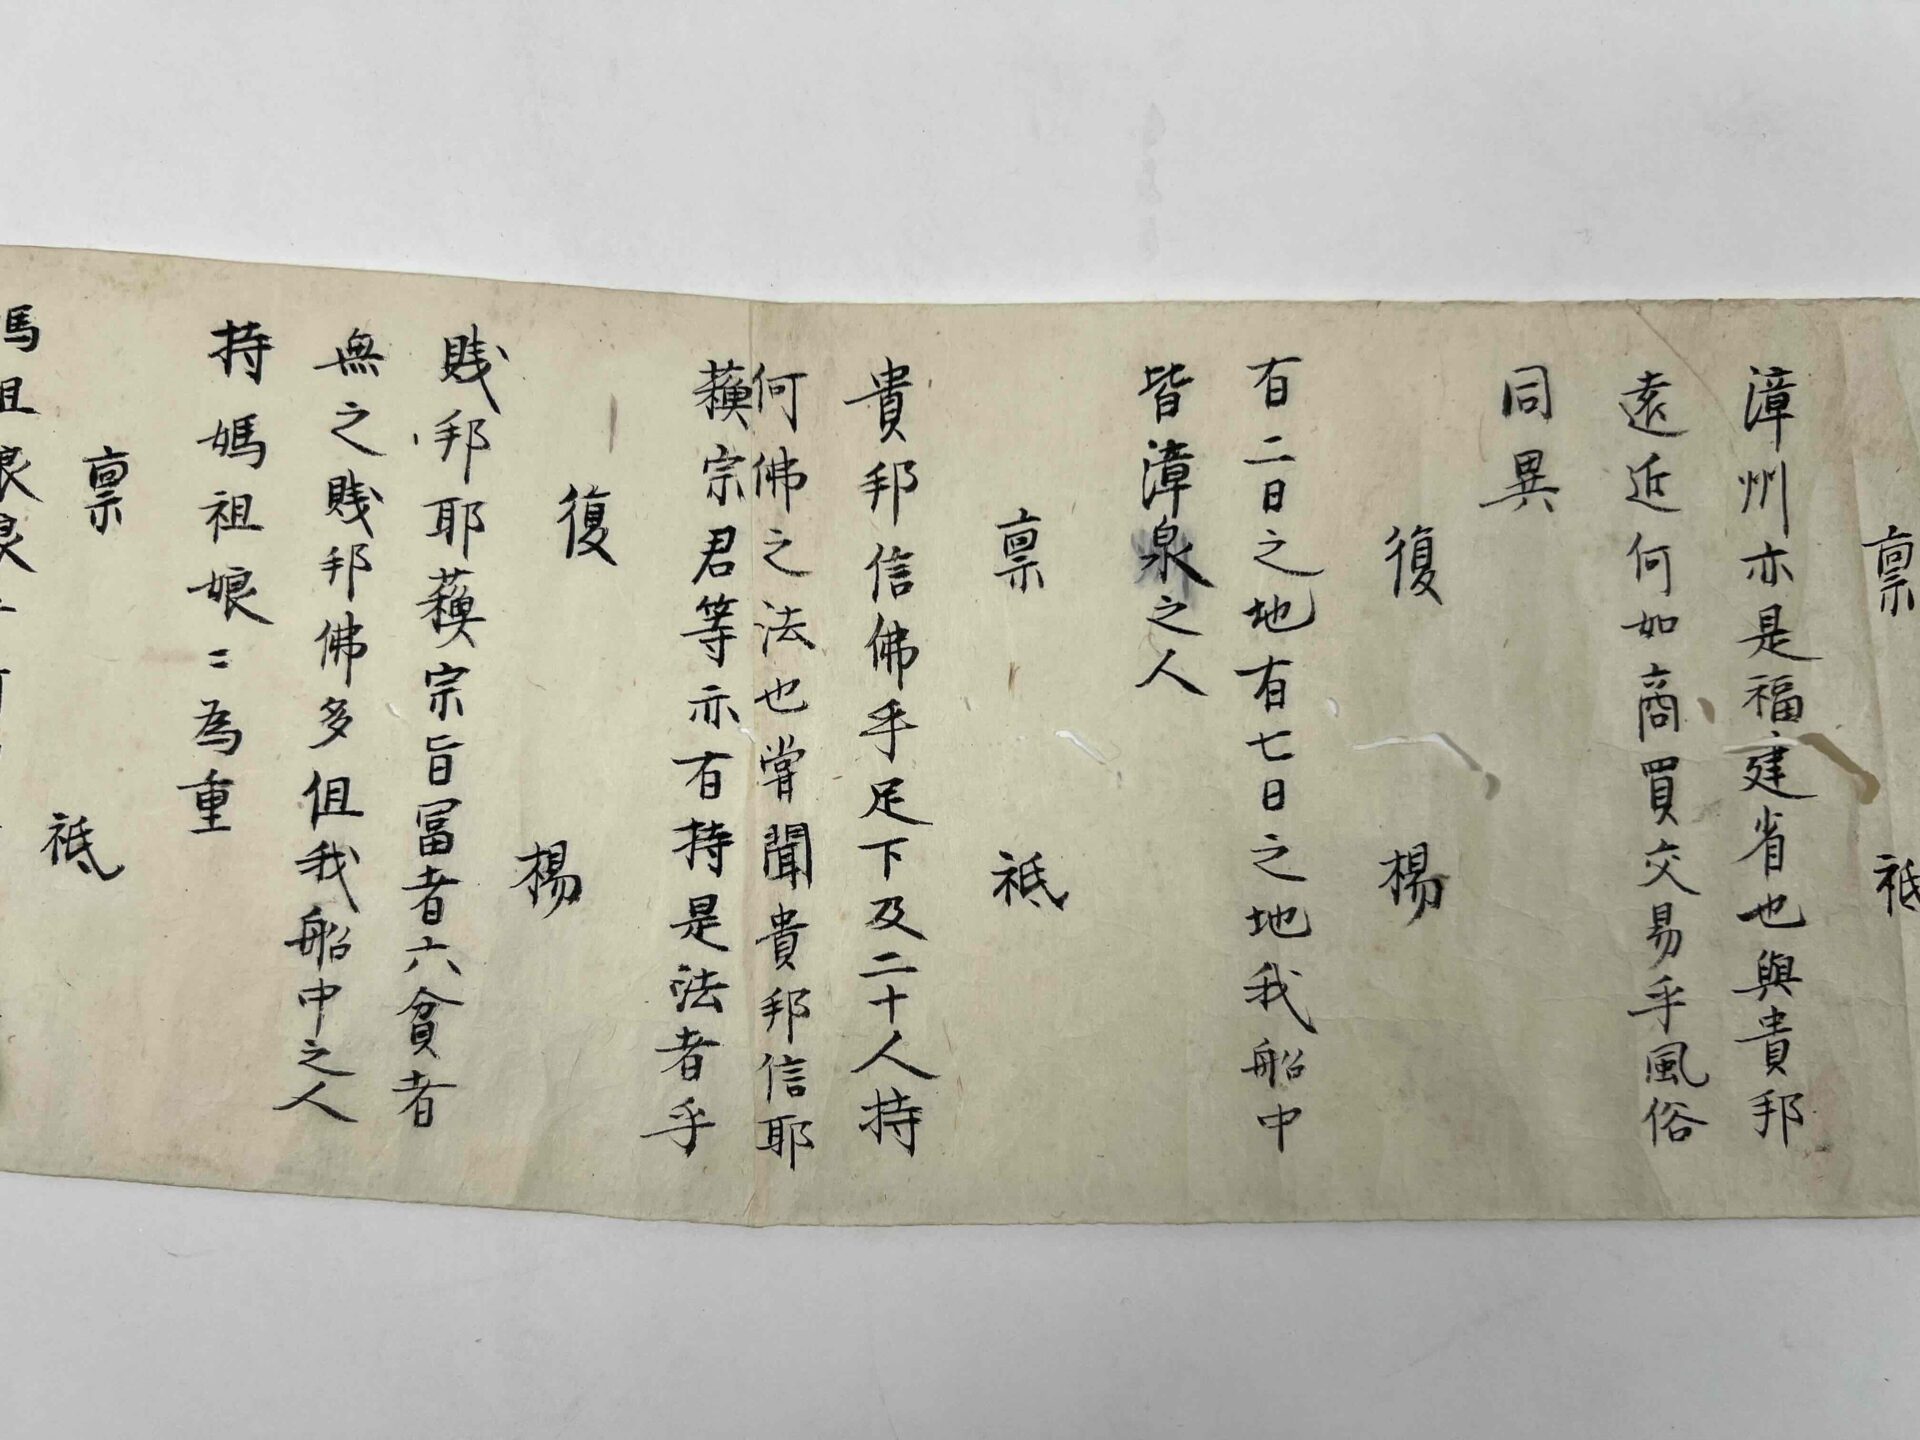 稟 祗
漳州亦是福建省也與貴邦
遠近何如商買交易乎風俗
同異
復 楊
有二日之地有七日之地我船中
皆漳泉之人
稟 祗
貴邦信佛乎足下及二十人持
何佛之法也嘗聞貴邦信耶
蘓宗君等亦有持是法者乎
復 楊
賤邦耶蘓宗旨冨者六貧者
無之賤邦佛多但我船中之人
持媽祖娘〻為重
稟 祗
媽祖娘娘